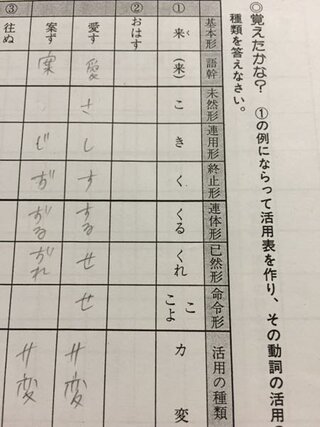 ◎覚えたかな? ①の例にならって活用表を作り、その動詞の活用
種類を答えなさい。
基本形 語幹 未然形 連用形 終止形 連体形 已然形 命令形 活用の種類
① 来 く (来) こ き く くる くれ こ こよ カ変
② おはす
愛す 愛 さ し す する せ せ サ変
案ず 案 じ ず ずる ずれ サ変
③ 往ぬ